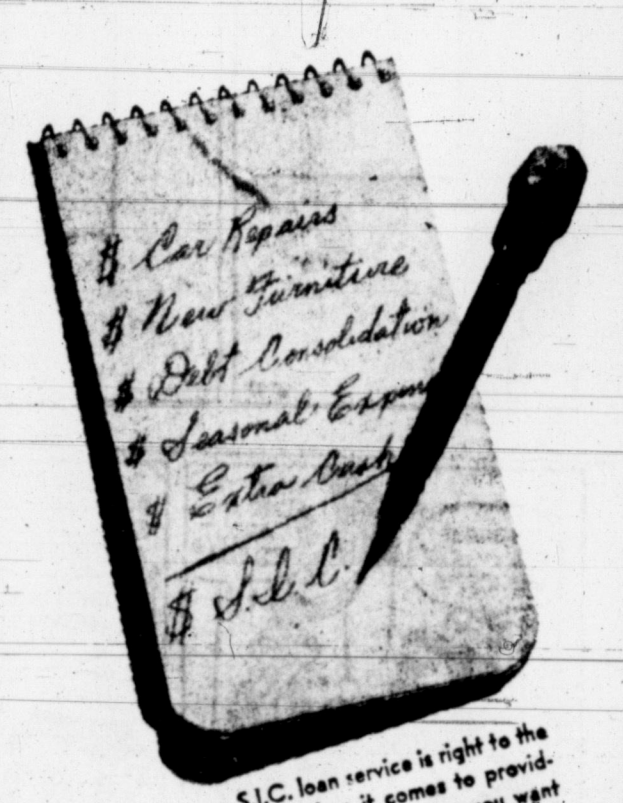 $ Car Repairs
$ New Furniture
$ Debt Consolidation
$ Seasonal
$ Extra Cash
$ S.I.C.
S.I.C. loan service is right to the
it comes to provid-
you want